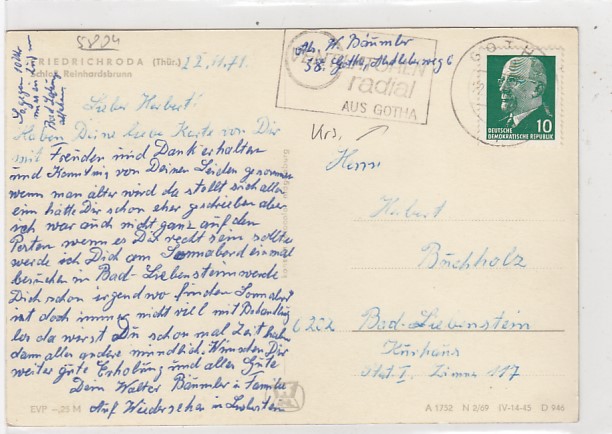 5804
FRIEDRICHRODA (Thür.)
Schloß Reinhardsbrunn
22.11.71.
Abs. W. Bäumler
58. Gotha,
VENTILATOREN
radial
AUS GOTHA
GOTHA
DEUTSCHE
DEMOKRATISCHE REPUBLIK
10
Lieber Herbert!
Haben Deine liebe Karte von Dir
mit Freuden und Dank erhalten
und Kenntnis von Deinen Leiden genommen
wenn man älter wird da stellt sich alles
ein hätte Dir schon eher geschrieben aber
ich war auch nicht ganz auf den
Posten wenn es Dir recht sein sollte
werde ich Dich am Sonnabend einmal
besuchen in Bad-Liebenstein werde
Dich schon irgendwo finden Sonnabend
ist doch immer nicht viel mit Behandlung
los da wirst Du schon mal Zeit haben
dann alles andere mündlich. Wünschen Dir
weiter gute Erholung und alles Gute
Dein Walter Bäumler u. Familie
Auf Wiedersehen in Liebenstein
Krs.
Herrn
Herbert
Buchholz
6202 Bad-Liebenstein
Kurhaus
Stat. I. Zimmer 117
EVP -,25 M
A 1752 N 2/69 IV-14-45 D 946